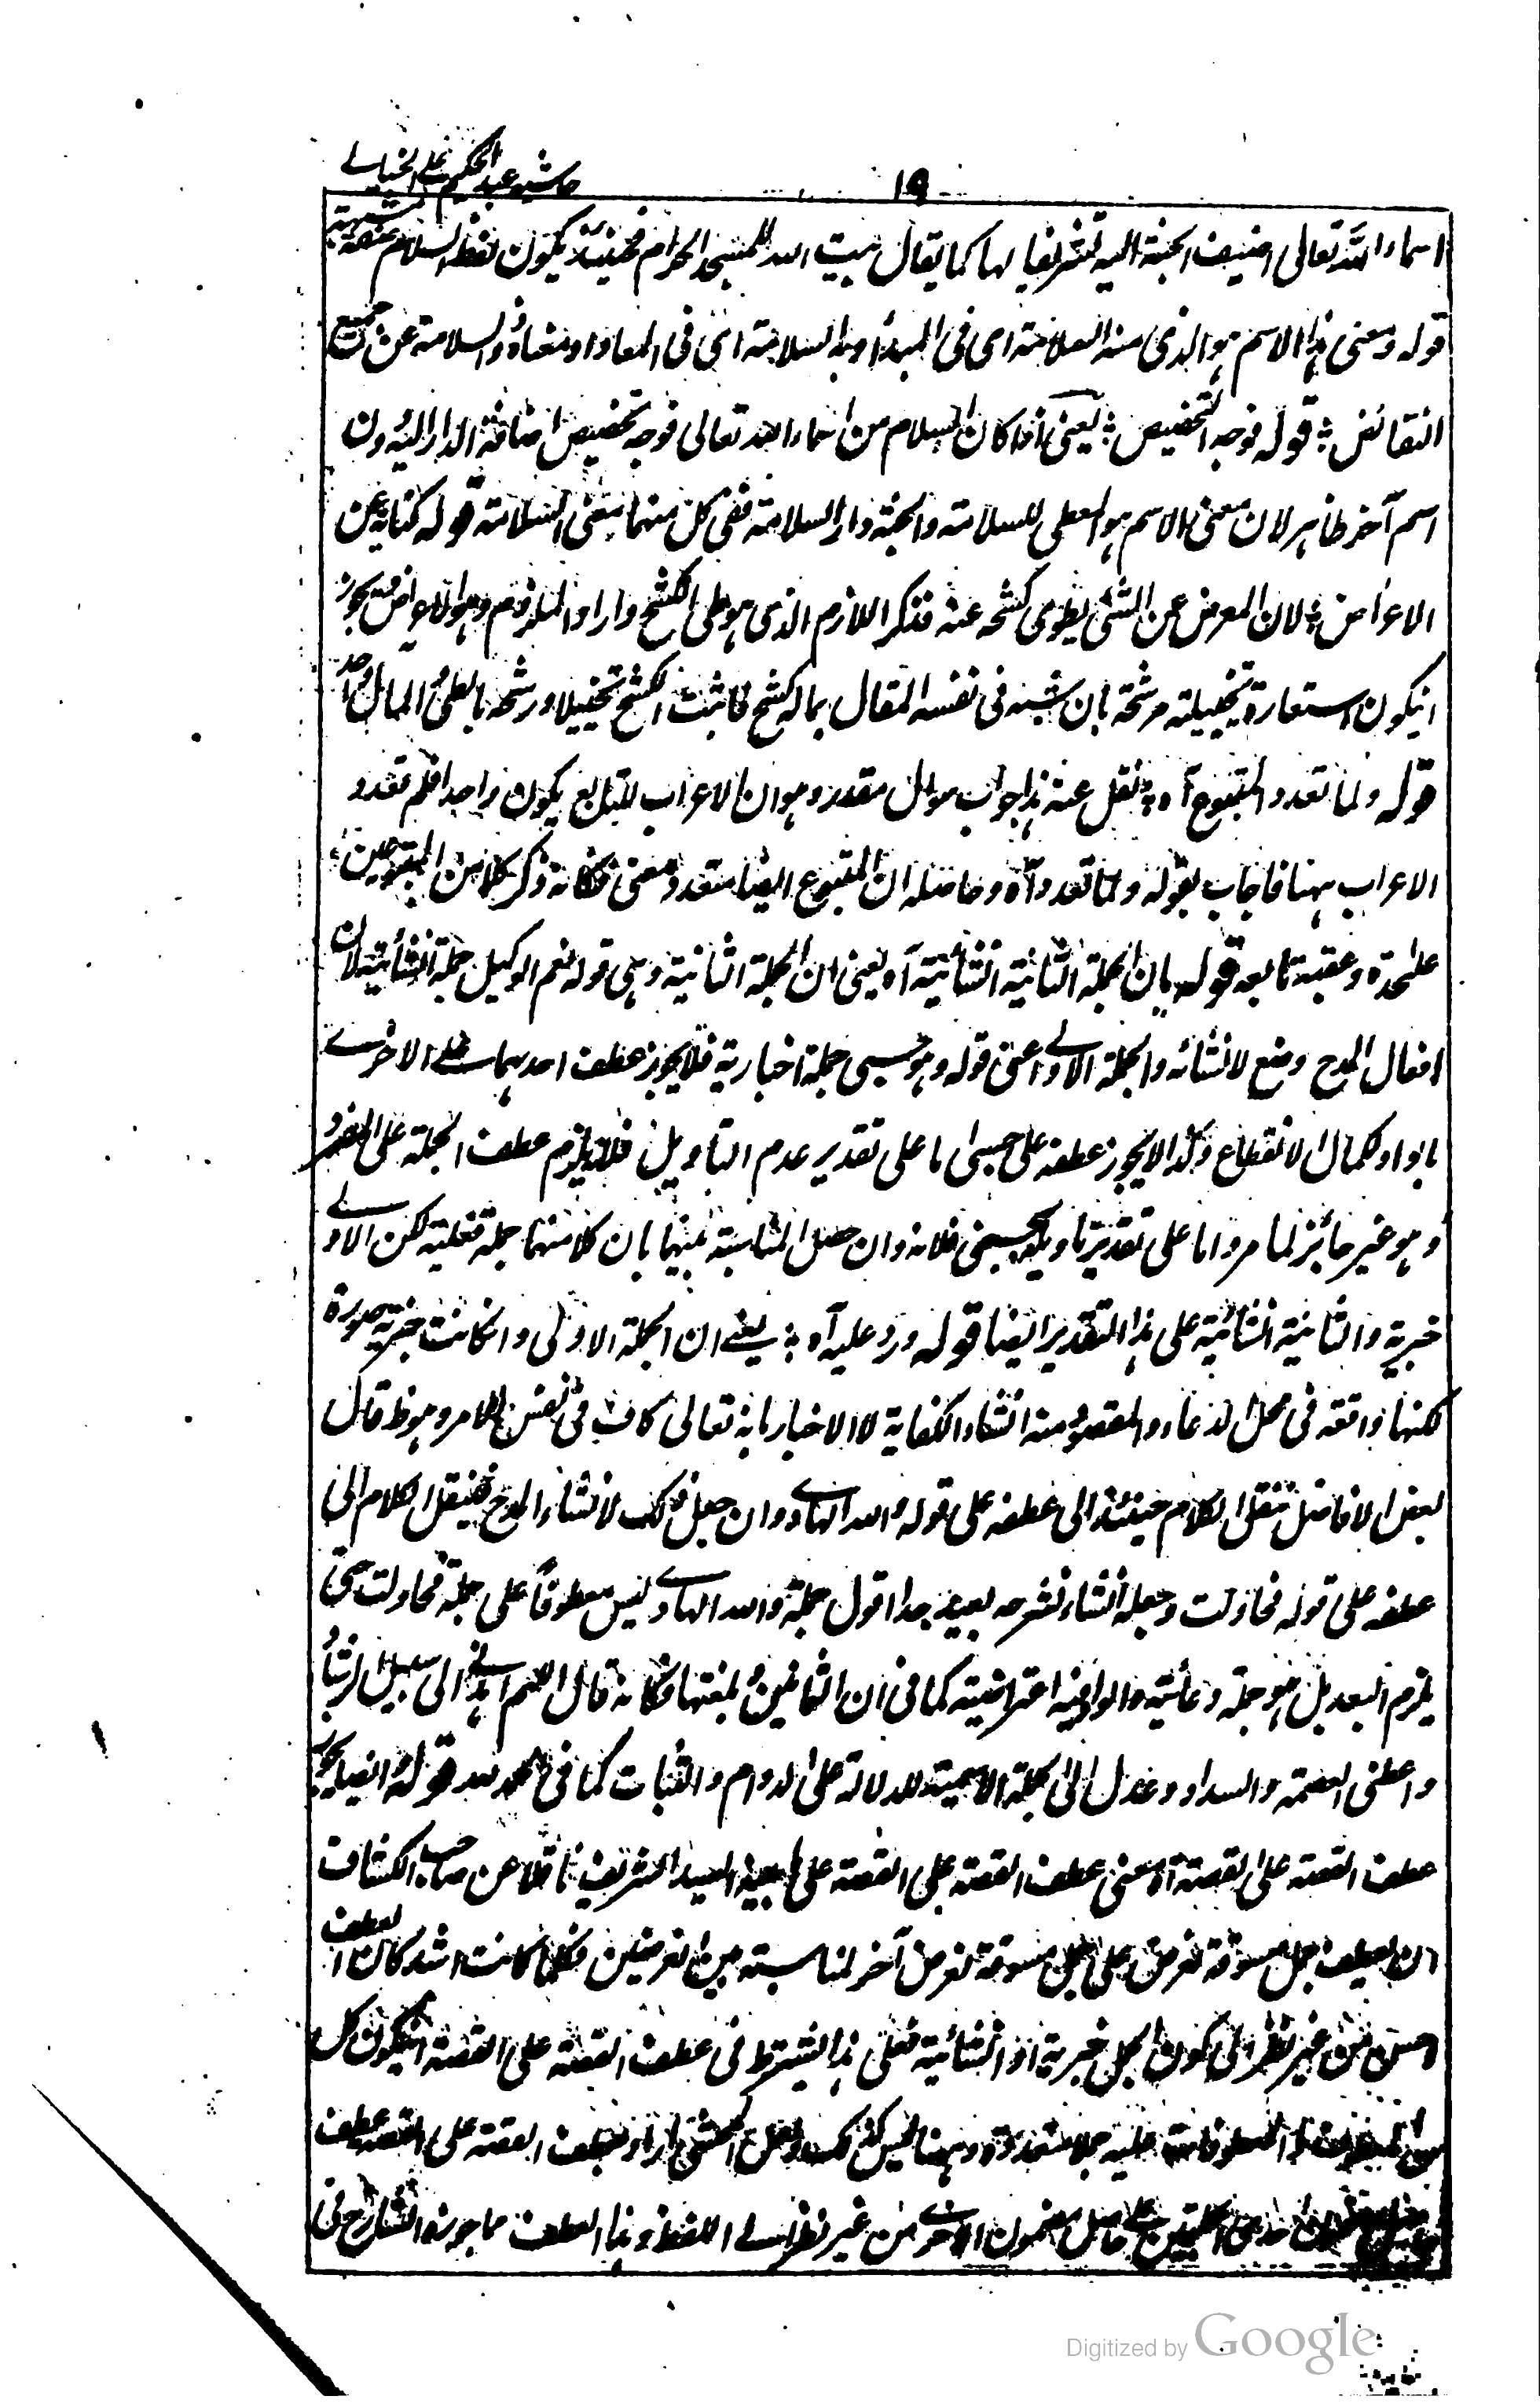 حاشیه عبد الحکیم علی الخیالے
۱۹
اسماء الله تعالی اضیف الجنة الیه تشریفا لها کما یقال بیت الله للمسجد الحرام فحینئذ یکون لفظ السلام
قوله ومعنی هذا الاسم هو الذی منه السلامة ای فی المبدأ وبه السلامة ای فی المعاد او معناه ذو السلامة عن جمیع
النقائض ؛ قوله فوجه التخصیص ؛ یعنی اذا کان السلام من اسماء الله تعالی فوجه تخصیص اضافة الدار الیه دون
اسم آخر ظاهر لان معنی الاسم هو المعطی للسلامة والجنة دار السلامة ففی کل منهما معنی السلامة قوله کنایة عن
الاعراض ؛ لان المعرض عن الشئ یطوی کشحه عنه فذکر اللازم الذی هو طی الکشح واراد الملزوم وهو الاعراض ویجوز
ان یکون استعارة تخییلیة مرشحة بان شبه فی نفسه المقال بما له کشح فاثبت الکشح تخییلا ورشحه بالطی المآل واحد
قوله ولما تعدد المتبوع آه ؛ نقل عنه هذا جواب سوال مقدر وهو ان الاعراب للتابع یکون واحدا فلم تعدد
الاعراب ههنا فاجاب بقوله ولما تعدد آه وحاصله ان المتبوع ایضا متعدد معنی فکانه ذکر کلا من المتبوعین
علحدة وعقبه تابعه قوله بان الجملة الثانیة انشائیة آه یعنی ان الجملة الثانیة وهی قوله نعم الوکیل جملة انشائیة لان
افعال المدح وضع لانشائه والجملة الاولے اعنی قوله وهو حسبی جملة اخباریة فلا یجوز عطف احدهما علے الاخرے
بالواو لکمال الانقطاع وکذا لا یجوز عطفه علی حسبی اما علی تقدیر عدم التاویل فلانه یلزم عطف الجملة علی المفرد
وهو غیر جائز لما مر واما علی تقدیر تاویله بیحسبنی فلانه وان حصل المناسبة بینهما بان کلا منهما جملة فعلیة لکن الاولے
خبریة والثانیة انشائیة علی هذا التقدیر ایضا قوله ورد علیه آه ؛ یعنے ان الجملة الاولی وان کانت خبریة صورة
لکنها واقعة فی محل الدعاء والمقصود منه انشاء الکفایة لا الاخبار بانه تعالی کاف فی نفس الامر وهو ظ قال
بعض الافاضل ننقل الکلام حینئذ الی عطفه علی قوله والله الهادے وان جعل ذلک لانشاء المدح فینقل الکلام الی
عطفه علی قوله فحاولت وجعله انشاء نشرحه بعید جدا اقول جملة والله الهادے لیس معطوفا علی جملة فحاولت حتی
یلزم البعد بل هو جملة دعائیة والواو فیه اعتراضیة کما فی ان الثمانین وبلغتها فکانه قال اللهم اهدنے الی سبیل الرشاد
واعطنی العصمة والسداد وعدل الی الجملة الاسمیة للدلالة علی الدوام والثبات کما فی الحمد لله قوله ایضا یجوز
عطف القصة علی القصة آه معنی عطف القصة علی القصة علی ما بینه السید الشریف ناقلا عن صاحب الکشاف
ان یعطف جمل مسوقة لغرض علی جمل مسوقة لغرض آخر لمناسبة بین الغرضین فکلما کانت اشد کان العطف
احسن من غیر نظر الی کون الجمل خبریة او انشائیة فعلی هذا یشترط فی عطف القصة علی القصة ان یکون کل
من المعطوف والمعطوف علیه جملا متعددة وههنا لیس کذلک ولعل المحشی اراد بعطف القصة علی القصة عطف
حاصل مضمون احدی الجملتین علی حاصل مضمون الاخرے من غیر نظر الے اللفظ وهذا العطف مما جوزه الشارح فی
Digitized by Google